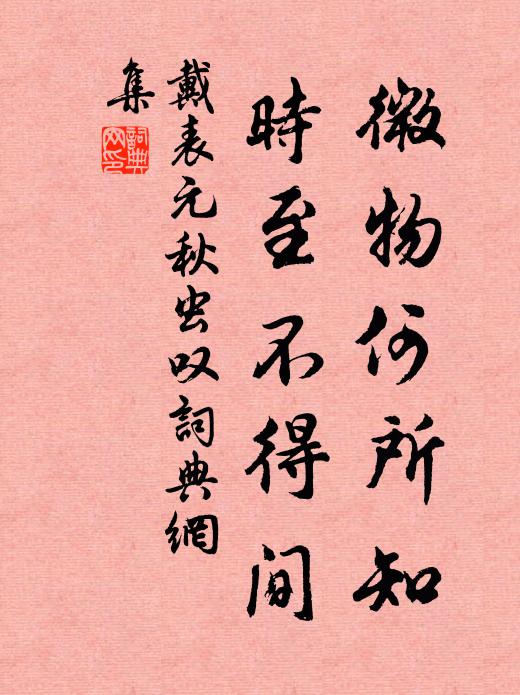 微物何所知
時至不得間
戴表元秋虫叹詞典網
集
詞典
网印